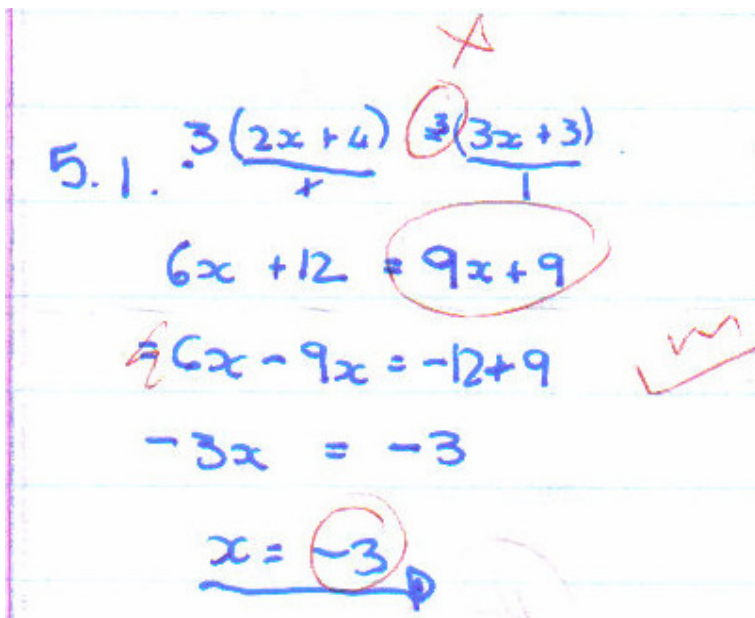 5.1. 3(2x+4) 3(3x+3)
6x +12 = 9x+9
= 6x - 9x = -12+9
-3x = -3
x = -3